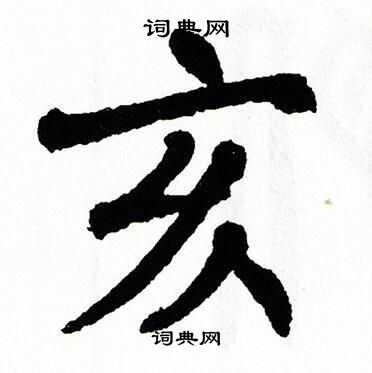 词典网
亥
词典网